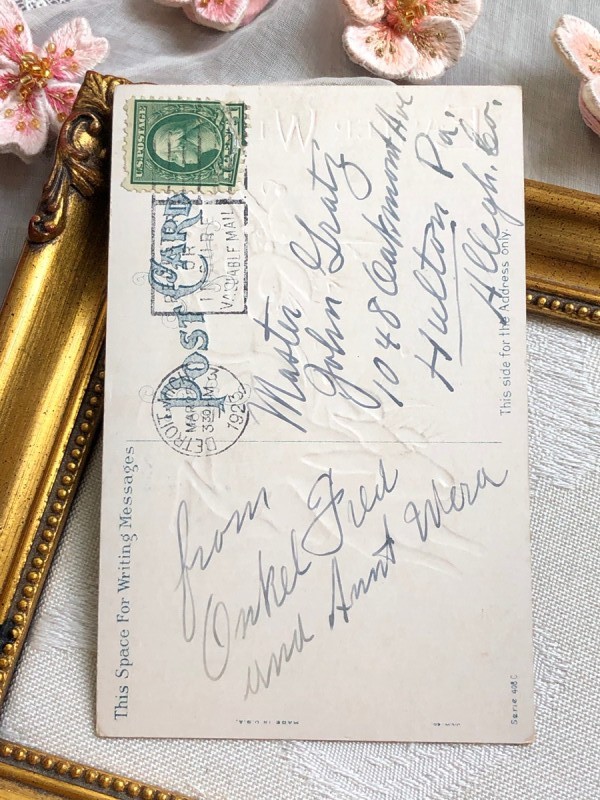 This Space For Writing Messages
from
Onkel Fred
and Aunt Wera
POST CARD
U.S. POSTAGE
VALUABLE MAIL
DETROIT
MAR
330 PM
1923
Master
John Gratz
1048 Oakmont Ave
Hulton Pa.
Allegh. Co.
This side for the Address only.
MADE IN U.S.A.